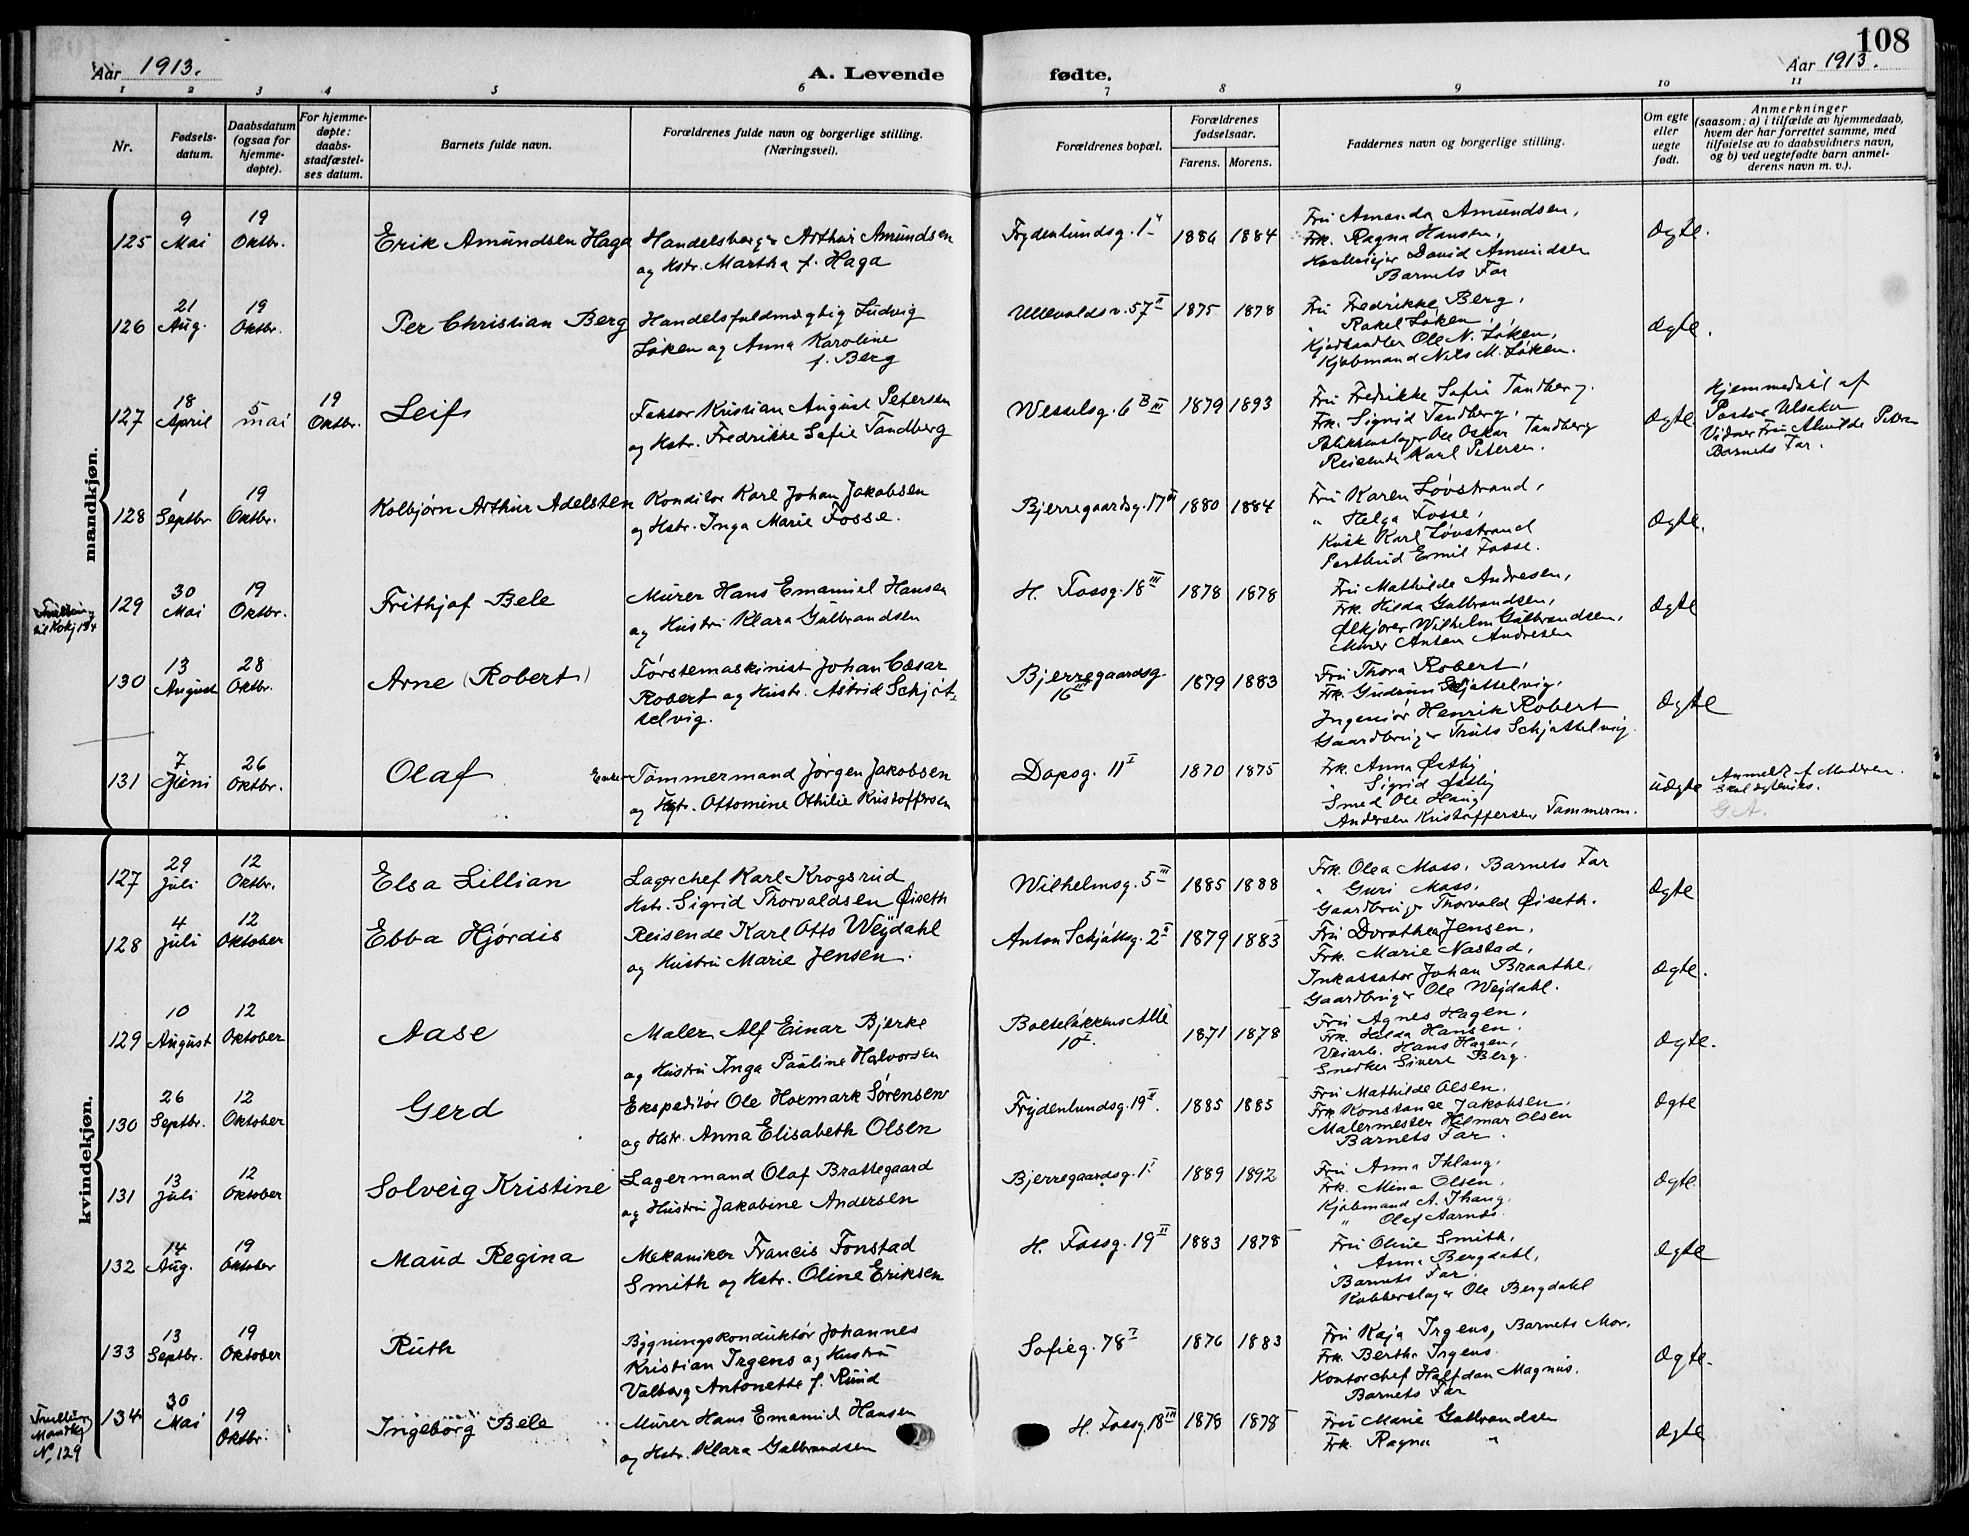 108
Aar 1913.
A. Levende fødte.
Aar 1913.
1 2 3 4 5 6 7 8 9 10 11
Nr.
Fødsels-
datum.
Daabsdatum
(ogsaa for
hjemme-
døpte).
For hjemme-
døpte:
daabs-
stadfæstel-
ses datum.
Barnets fulde navn.
Forældrenes fulde navn og borgerlige stilling.
(Næringsvei).
Forældrenes bopæl.
Forældrenes
fødselsaar.
Farens. Morens.
Faddernes navn og borgerlige stilling.
Om egte
eller
uegte
født.
Anmerkninger
(saasom: a) i tilfælde av hjemmedaab,
hvem der har forrettet samme, med
tilføielse av to daabsvidners navn,
og b) ved uegtefødte barn anmel-
derens navn m. v.).
mandkjøn.
125
9
Mai
19
Oktbr.
Erik Amundsen Haga
Handelsborger Arthur Amundsen
og Hstr. Martha f. Haga
Frydenlundsg. 1
1886 1884
Fru Amanda Amundsen,
Frk. Ragna Hansen,
David Amundsen
Barnets Far
Ægte.
126
21
Aug.
19
Oktbr.
Per Christian Berg
Handelsfuldmægtig Ludvig
Løken og Anna Karoline
f. Berg
Ullevoldsv. 57 II
1875 1878
Fru Fredrikke Berg,
" Rakel Løken,
Kjødhandler Ole N. Løken,
Kjøbmand Nils M. Løken.
Ægte.
127
18
April
5
mai
19
Oktbr.
Leif
Faktor Kristian August Petersen
og Hstr. Fredrikke Sofie Tandberg
Wesselsg. 6 B III
1879 1893
Fru Fredrikke Sofie Tandberg.
Frk. Sigrid Tandberg,
Blikkenslager Ole Oskar Tandberg
Reisende Karl Petersen.
Ægte
Hjemmedøbt af
Pastor
Vidner Fru Alvilde Petersen
Barnets Far.
128
1
Septbr
19
Oktbr.
Kolbjørn Arthur Adelsten
Konditor Karl Johan Jakobsen
og Hstr. Inga Marie Fosse.
Bjerregaardsg. 17 III
1880 1884
Fru Karen Løvstrand,
" Helga Fosse,
Kusk Karl Løvstrand
Postbud Ermil Fosse.
Ægte.
Tvilling
til Kvkj 134
129
30
Mai
19
Oktbr.
Frithjof Bele
Murer Hans Emanuel Hansen
og Hustru Klara Gulbrandsen
H. Fossg. 18 III
1878 1878
Fru Mathilde Andresen,
Frk. Hilda Gulbrandsen,
Ølkjører Wilhelm Gulbrandsen,
Murer Anton Andresen
Ægte
130
13
August
28
Oktbr.
Arne (Robert)
Førstemaskinist Johan Cæsar
Robert og Hustr. Astrid Schjøt-
telvig.
Bjerregaardsg
16 III
1879 1883
Fru Thora Robert,
Frk. Gudrun Schjøttelvig,
Ingeniør Henrik Robert
Gaardbruger Truls Schjøttelvig.
Ægte
131
7
Juni
26
Oktbr.
Olaf
Tømmermand Jørgen Jakobsen
og Ottomine Othilie Kristoffersen
Dopsg. 11 I
1870 1875
Frk. Anna Østby
" Sigrid Østby
Smed Ole Haug
Andersen Kristoffersen, Tømmerm.
Uægte
Anmeldt af Moderen.
Skal ægtevies.
G.A.
kvindekjøn.
127
29
Juli
12
Oktbr.
Elsa Lillian
Lagerchef Karl Krogsrud
Hstr. Sigrid Thorvaldsen Øiseth
Wilhelmsg. 5 III
1885 1888
Frk. Olea Moss, Barnets Far
" Guri Moss,
Gaardbruger Thorvald Øiseth.
Ægte
128
4
Juli
12
Oktober
Ebba Hjørdis
Reisende Karl Otto Weydahl
og Hustru Marie Jensen.
Anton Schjøttsg. 2 II
1879 1883
Fru Dorothea Jensen,
Frk. Marie Nastad,
Inkassator Johan Braathe,
Gaardbruger Ole Weydahl.
Ægte.
129
10
August
12
Oktober
Aase
Maler Alf Einar Bjerke
og Hustru Inga Pauline Halvorsen
Bolteløkkens Allé
10 I.
1871 1878
Fru Agnes Hagen,
Frk. Hilda Hansen.
Veiarb. Hans Hagen,
Snedker Sivert Berg.
Ægte.
130
26
Septbr.
12
Oktober
Gerd
Ekspeditør Ole Hormark Sørensen
og Hstr. Anna Elisabeth Olsen
Frydenlundsg. 19 II.
1885 1885
Fru Mathilde Olsen.
Frk Konstance Jakobsen,
Malermester Hilmar Olsen
Barnets Far.
Ægte
131
13
Juli
12
Oktober
Solveig Kristine
Lagermand Olaf Brattegaard
og Hustru Jakobine Andersen
Bjerregaardsg. 1 I
1889 1892
Fru Anna
Frk. Mina Olsen,
Kjøbmand A.
" Olaf Aarnæs.
Ægte
132
14
Aug.
19
Oktober
Maud Regina
Mekaniker Francis Fonstad
Smith og Hstr. Oline Eriksen
H. Fossg. 19 II
1883 1878
Fru Oline Smith,
" Anna Bergdahl,
Barnets Far.
Kobberslager Ole Bergdahl
Ægte
133
13
Septbr.
19
Oktober
Ruth
Bygningskonduktør Johannes
Kristian Irgens og Hustru
Valborg Antonette f. Ruud
Sofieg. 78 I
1876 1883
Fru Kaja Irgens, Barnets Mor.
Frk. Berthe Irgens.
Kontorchef Halfdan Magnus.
Barnets Far
Ægte.
Tvilling
Mandkj
No. 129
134
30
Mai
19
Oktbr.
Ingebørg Bele
Murer Hans Emanuel Hansen
og Hstr. Klara Gulbrandsen
H. Fossg. 18 III
1878 1878
Fru Marie Gulbrandsen
Frk. Ragna "
Ægte